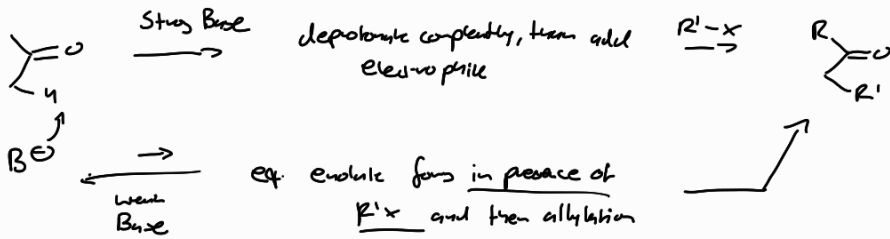 Strong Base
deprotonate completely, then add
electrophile
R'-X
R
O
R'
O
H
B⊖
weak
Base
eq. enolate forms in presence of
R'X and then alkylation